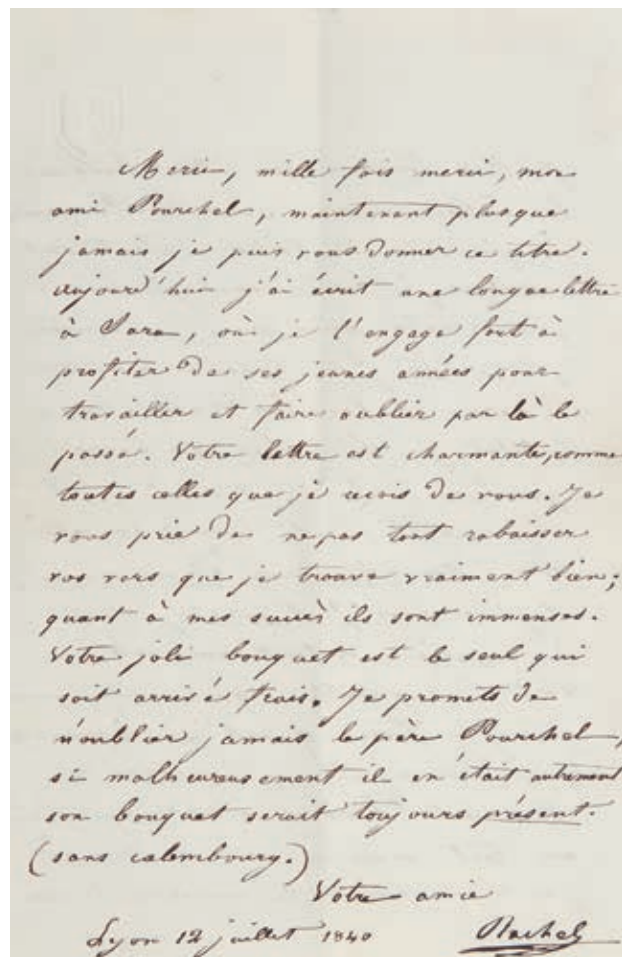 Merci, mille fois merci, mon
ami Pourchel, maintenant plus que
jamais je puis vous donner ce titre.
aujourd'hui j'ai écrit une longue lettre
à Sara, où je l'engage fort à
profiter de ses jeunes années pour
travailler et faire oublier par là le
passé. Votre lettre est charmante, comme
toutes celles que je recois de vous. Je
vous prie de ne pas tant rabaisser
vos vers que je trouve vraiment bien;
quant à mes succès ils sont immenses.
Votre joli bouquet est le seul qui
soit arrivé frais. Je promets de
n'oublier jamais le père Pourchel,
si malheureusement il en était autrement
son bouquet serait toujours présent.
(sans calembourg.)
Votre amie
Lyon 12 juillet 1840 Rachel